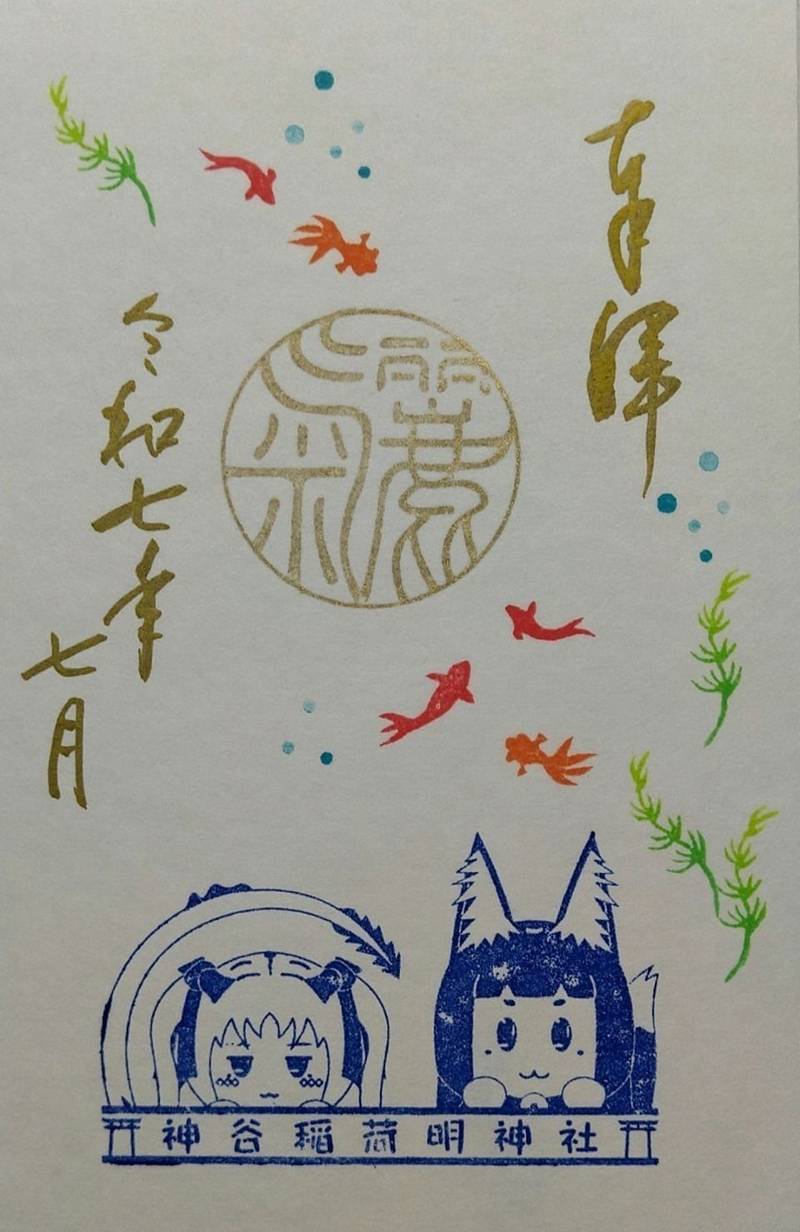 奉拝
令和七年
七月
神谷稲荷明神社